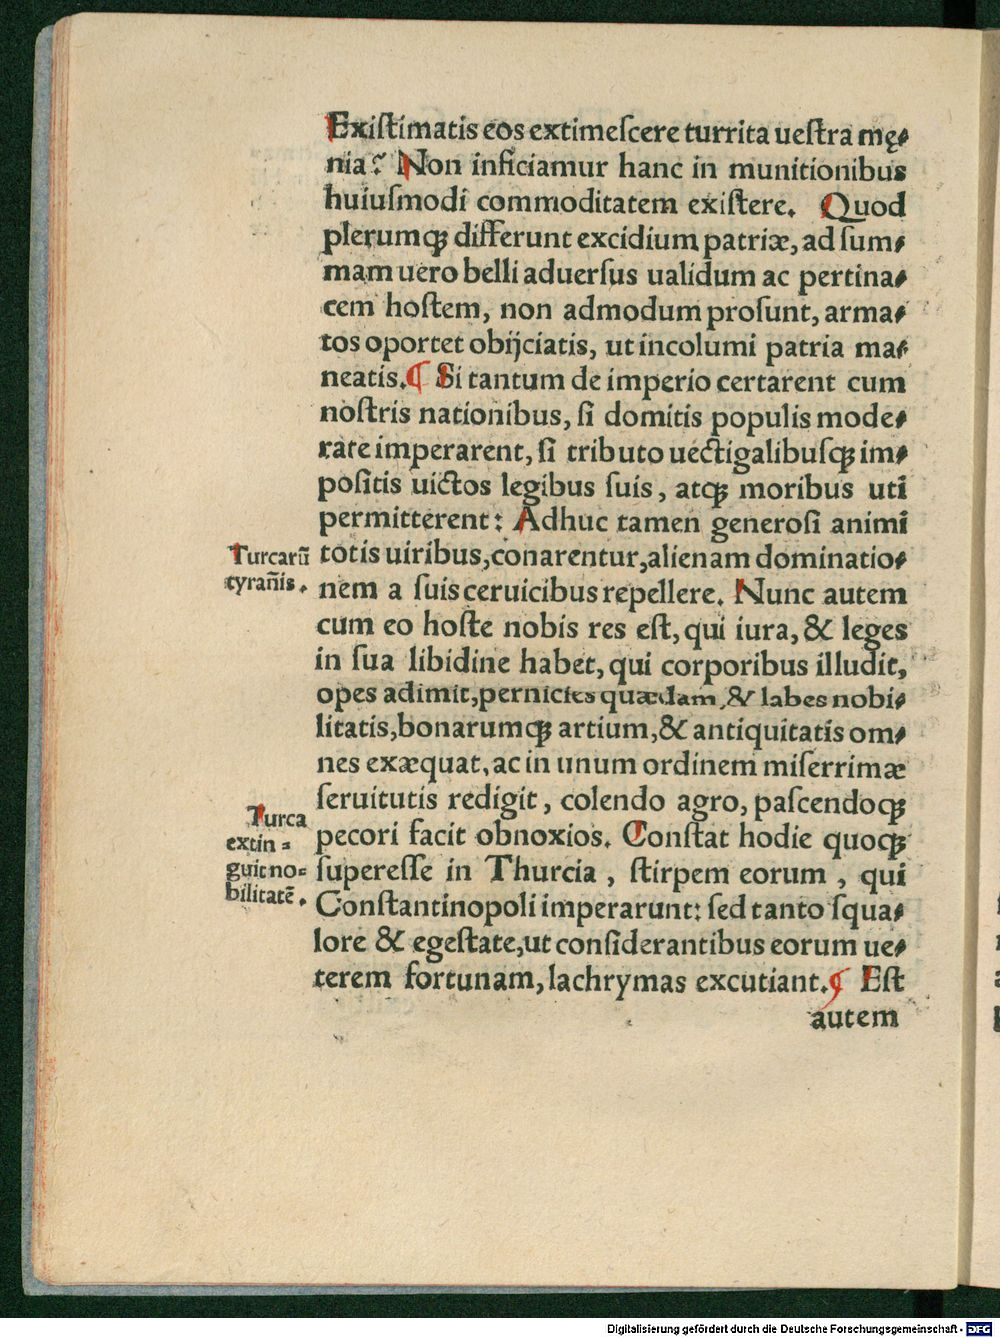 Exiſtimatis eos extimeſcere turrita ueſtra mę⸗
nia? Non inficiamur hanc in munitionibus
huiuſmodi commoditatem exiſtere. Quod
plerumqꝫ differunt excidium patriæ, ad ſum⸗
mam uero belli aduerſus ualidum ac pertina⸗
cem hoſtem, non admodum proſunt, arma⸗
tos oportet obijciatis, ut incolumi patria ma⸗
neatis. ¶ Si tantum de imperio certarent cum
noſtris nationibus, ſi domitis populis mode⸗
rate imperarent, ſi tributo uectigalibuſqꝫ im⸗
poſitis uictos legibus ſuis, atqꝫ moribus uti
permitterent: Adhuc tamen generoſi animi
totis uiribus, conarentur, alienam dominatio⸗
nem a ſuis ceruicibus repellere. Nunc autem
cum eo hoſte nobis res eſt, qui iura, & leges
in ſua libidine habet, qui corporibus illudit,
opes adimit, pernicies quædam, & labes nobi⸗
litatis, bonarumqꝫ artium, & antiquitatis om⸗
nes exæquat, ac in unum ordinem miſerrimæ
ſeruitutis redigit, colendo agro, paſcendoqꝫ
pecori facit obnoxios. Conſtat hodie quoqꝫ
ſupereſſe in Thurcia, ſtirpem eorum, qui
Conſtantinopoli imperarunt: ſed tanto ſqua⸗
lore & egeſtate, ut conſiderantibus eorum ue⸗
terem fortunam, lachrymas excutiant. ¶ Eſt
autem
Turcarū
tyrañis.
Turca
extin⸗
guit no⸗
bilitatē.
Digitalisierung gefördert durch die Deutsche Forschungsgemeinschaft - DFG